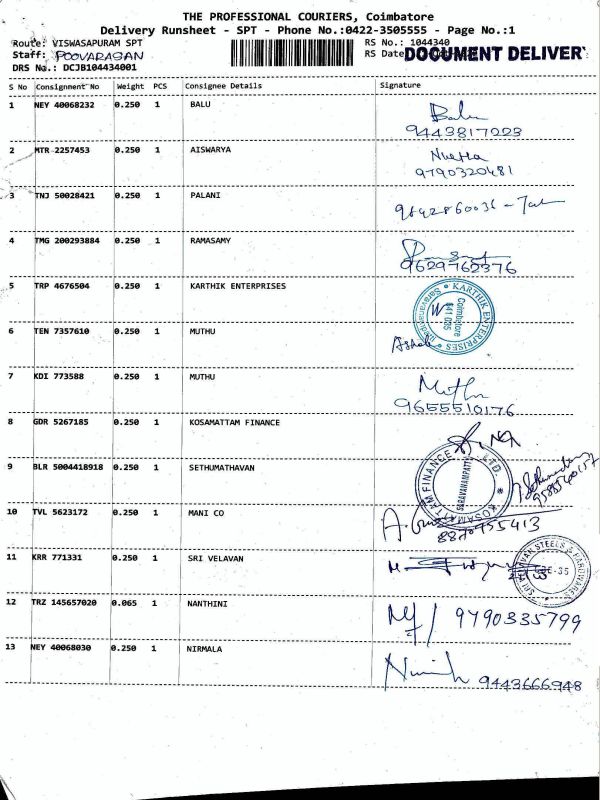 THE PROFESSIONAL COURIERS, Coimbatore
Delivery Runsheet - SPT - Phone No.:0422-3505555 - Page No.:1
Route: VISWASAPURAM SPT
RS No.: 1044340
Staff: POOVARASAN
RS Date
DOCUMENT DELIVERY
DRS No.: DCJB104434001
S No Consignment No Weight PCS Consignee Details Signature
1 NEY 40068232 0.250 1 BALU
Balu
9443817223
2 MTR 2257453 0.250 1 AISWARYA
9790320481
3 TNJ 50028421 0.250 1 PALANI
9842860036
4 TMG 200293884 0.250 1 RAMASAMY
9629762376
5 TRP 4676504 0.250 1 KARTHIK ENTERPRISES
KARTHIK ENTERPRISES
Coimbatore
641 035
6 TEN 7357610 0.250 1 MUTHU
7 KDI 773588 0.250 1 MUTHU
Muthu
9655510176
8 GDR 5267185 0.250 1 KOSAMATTAM FINANCE
KOSAMATTAM FINANCE LTD.
SARAVANAMPATTI
9 BLR 5004418918 0.250 1 SETHUMATHAVAN
10 TVL 5623172 0.250 1 MANI CO
8870955413
11 KRR 771331 0.250 1 SRI VELAVAN
SRI VELAVAN STEELS & HARDWARES
CBE-35
12 TRZ 145657020 0.065 1 NANTHINI
9790335799
13 NEY 40068030 0.250 1 NIRMALA
9443666948